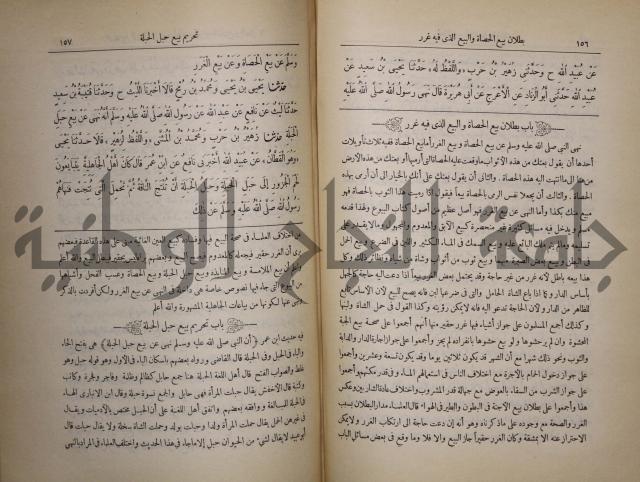 ١٥٦ بطلان بيع الحصاة والبيع الذى فيه غرر
عَنْ عُبَيْدِ اللهِ ح وَحَدَّثَنِى زُهَيْرُ بْنُ حَرْبٍ «وَاللَّفْظُ لَهُ» حَدَّثَنَا يَحْيَى بْنُ سَعِيدٍ عَنْ
عُبَيْدِ اللهِ حَدَّثَنِى أَبُو الزِّنَادِ عَنِ الْأَعْرَجِ عَنْ أَبِى هُرَيْرَةَ قَالَ نَهَى رَسُولُ اللهِ صَلَّى اللهُ عَلَيْهِ
باب بطلان بيع الحصاة والبيع الذى فيه غرر
نهى النبى صلى الله عليه وسلم عن بيع الحصاة وبيع الغرر أما بيع الحصاة ففيه ثلاث تأويلات
أحدها أن يقول بعتك من هذه الأثواب ما وقعت عليه الحصاة التى أرميها أو بعتك من هذه الأرض
من هنا إلى ما انتهت اليه هذه الحصاة. والثانى أن يقول بعتك على أنك بالخيار الى أن أرمى بهذه
الحصاة. والثالث أن يجعلا نفس الرمى بالحصاة بيعا فيقول اذا رميت هذا الثوب بالحصاة فهو
مبيع منك بكذا وأما النهى عن بيع الغرر فهو أصل عظيم من أصول كتاب البيوع ولهذا قدمه
مسلم ويدخل فيه مسائل كثيرة غير منحصرة كبيع الآبق والمعدوم والمجهول وما لا يقدر على
تسليمه وما لم يتم ملك البائع عليه وبيع السمك فى الماء الكثير واللبن فى الضرع وبيع الحمل
فى البطن وبيع بعض الصبرة مبهما وبيع ثوب من أثواب وشاة من شياه ونظائر ذلك وكل
هذا بيعه باطل لأنه غرر من غير حاجة وقد يحتمل بعض الغرر بيعا اذا دعت اليه حاجة كالجهل
بأساس الدار وكما اذا باع الشاة الحامل والتى فى ضرعها لبن فانه يصح للبيع لان الاساس تابع
للظاهر من الدار ولان الحاجة تدعو اليه فانه لا يمكن رؤيته وكذا القول فى حمل الشاة ولبنها
وكذلك أجمع المسلمون على جواز أشياء فيها غرر حقير منها أنهم أجمعوا على صحة بيع الجبة
المحشوة وان لم ير حشوها ولو بيع حشوها بانفراده لم يجز وأجمعوا على جواز اجارة الدار والدابة
والثوب ونحو ذلك شهرا مع أن الشهر قد يكون ثلاثين يوما وقد يكون تسعة وعشرين وأجمعوا
على جواز دخول الحمام بالأجرة مع اختلاف الناس فى استعمالهم الماء وفى قدر مكثهم وأجمعوا
على جواز الشرب من السقاء بالعوض مع جهالة قدر المشروب واختلاف عادة الشاربين وعكس
هذا وأجمعوا على بطلان بيع الأجنة فى البطون والطير فى الهواء قال العلماء مدار البطلان بسبب
الغرر والصحة مع وجوده على ما ذكرناه وهو أنه إن دعت حاجة الى ارتكاب الغرر ولا يمكن
الاحتراز عنه الا بمشقة وكان الغرر حقيرا جاز البيع والا فلا وما وقع فى بعض مسائل الباب
تحريم بيع حبل الحبلة ١٥٧
وَسَلَّمَ عَنْ بَيْعِ الْحَصَاةِ وَعَنْ بَيْعِ الْغَرَرِ
حَدَّثَنَا يَحْيَى بْنُ يَحْيَى وَمُحَمَّدُ بْنُ رُمْحٍ قَالَا أَخْبَرَنَا اللَّيْثُ ح وَحَدَّثَنَا قُتَيْبَةُ بْنُ سَعِيدٍ
حَدَّثَنَا لَيْثٌ عَنْ نَافِعٍ عَنْ عَبْدِ اللهِ عَنْ رَسُولِ اللهِ صَلَّى اللهُ عَلَيْهِ وَسَلَّمَ أَنَّهُ نَهَى عَنْ بَيْعِ حَبَلِ
الْحَبَلَةِ حَدَّثَنِى زُهَيْرُ بْنُ حَرْبٍ وَمُحَمَّدُ بْنُ الْمُثَنَّى «وَاللَّفْظُ لِزُهَيْرٍ» قَالَا حَدَّثَنَا يَحْيَى
«وَهُوَ الْقَطَّانُ» عَنْ عُبَيْدِ اللهِ أَخْبَرَنِى نَافِعٌ عَنِ ابْنِ عُمَرَ قَالَ كَانَ أَهْلُ الْجَاهِلِيَّةِ يَتَبَايَعُونَ
لَحْمَ الْجَزُورِ إِلَى حَبَلِ الْحَبَلَةِ وَحَبَلُ الْحَبَلَةِ أَنْ تُنْتَجَ النَّاقَةُ ثُمَّ تَحْمِلَ الَّتِى نُتِجَتْ فَنَهَاهُمْ
رَسُولُ اللهِ صَلَّى اللهُ عَلَيْهِ وَسَلَّمَ عَنْ ذٰلِكَ
من اختلاف العلماء فى صحة البيع فيها وفساده كبيع العين الغائبة مبنى على هذه القاعدة فبعضهم
يرى أن الغرر حقير فيجعله كالمعدوم فيصح البيع وبعضهم يراه ليس بحقير فيبطل البيع والله أعلم
واعلم أن بيع الملامسة وبيع المنابذة وبيع حبل الحبلة وبيع الحصاة وعسب الفحل وأشباهها
من البيوع التى جاء فيها نصوص خاصة هى داخلة فى النهى عن بيع الغرر ولكن أفردت بالذكر
ونهى عنها لكونها من بياعات الجاهلية المشهورة والله أعلم
باب تحريم بيع حبل الحبلة
فيه حديث ابن عمر ﴿أن النبى صلى الله عليه وسلم نهى عن بيع حبل الحبلة﴾ هى بفتح الحاء
والباء فى الحبل وفى الحبلة قال القاضى ورواه بعضهم باسكان الباء فى الأول وهو قوله حبل وهو
غلط والصواب الفتح قال أهل اللغة الحبلة هنا جمع حابل كظالم وظلمة وفاجر وفجرة وكاتب
وكتبة قال الأخفش يقال حبلت المرأة فهى حابل والجمع نسوة حبلة وقال ابن الانبارى الهاء
فى الحبلة للمبالغة ووافقه بعضهم واتفق أهل اللغة على أن الحبل مختص بالآدميات ويقال
فى غيرهن الحمل يقال حملت المرأة ولدا وحبلت بولد وحملت الشاة سخلة ولا يقال حبلت قال
أبو عبيد لا يقال لشىء من الحيوان حبل إلا ما جاء فى هذا الحديث واختلف العلماء فى المراد بالنهى